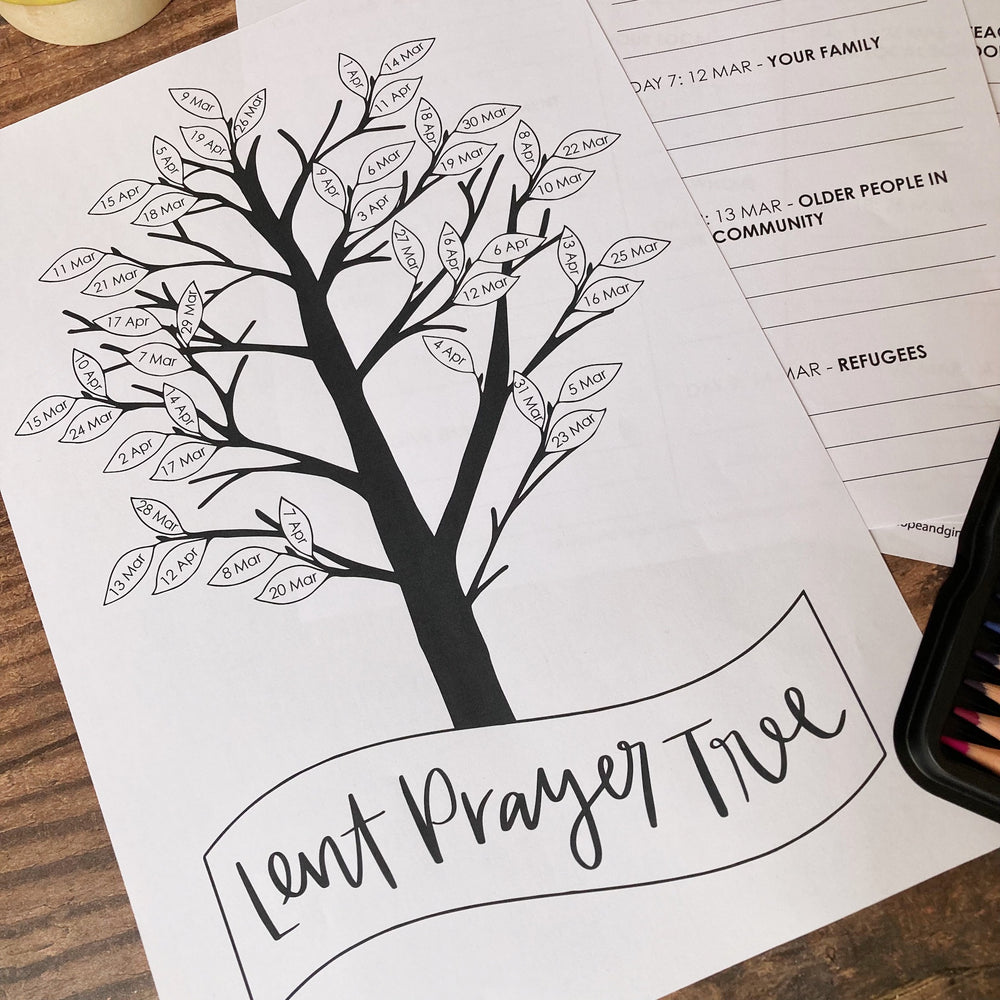 1 Apr
14 Mar
11 Apr
9 Mar
26 Mar
19 Apr
5 Apr
15 Apr
18 Mar
18 Apr
30 Mar
6 Mar
19 Mar
9 Apr
3 Apr
8 Apr
22 Mar
10 Mar
11 Mar
21 Mar
27 Mar
6 Apr
6 Apr
12 Mar
13 Apr
25 Mar
16 Mar
17 Apr
29 Mar
7 Mar
4 Apr
10 Apr
15 Mar
24 Mar
14 Apr
2 Apr
17 Mar
31 Mar
5 Mar
23 Mar
28 Mar
7 Apr
13 Mar
12 Apr
8 Mar
20 Mar
Lent Prayer Tree
DAY 7: 12 MAR - YOUR FAMILY
: 13 MAR - OLDER PEOPLE IN
COMMUNITY
MAR - REFUGEES